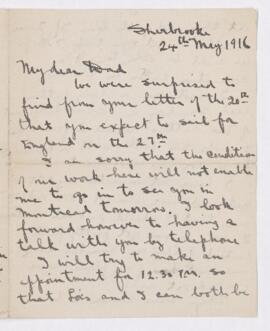 Sherbrooke
24th May 1916
My dear Dad
We were surprised to
find from your letter of the 20th
that you expect to sail for
England on the 27th
I am sorry that the condition
of my work here will not enable
me to go in to see you in
Montreal tomorrow. I look
forward however to having a
talk with you by telephone
I will try to make an
appointment for 12.30 P.M. so
that Lois and I can both be